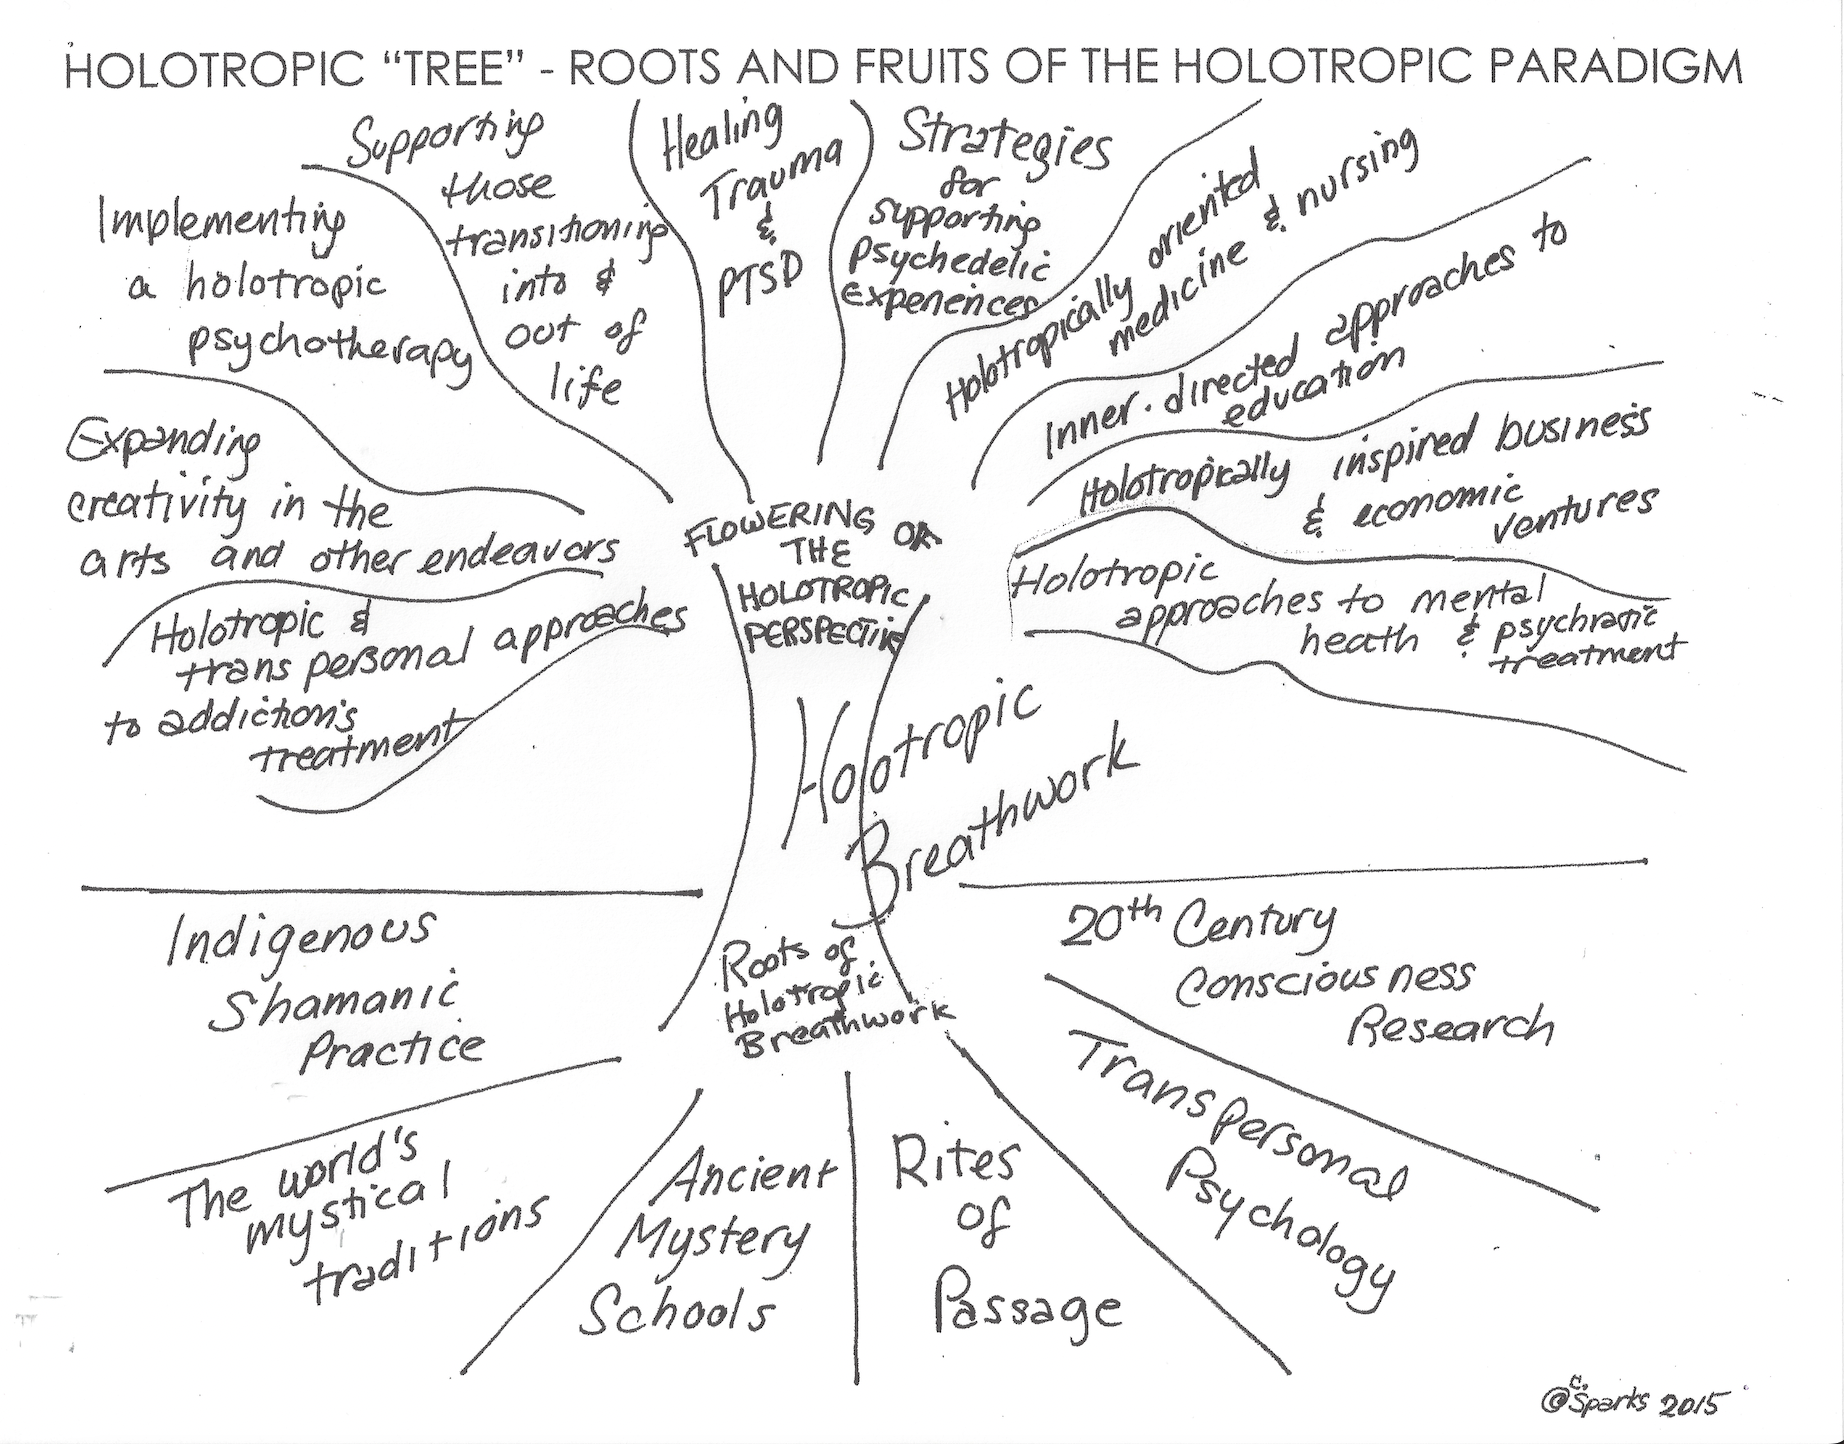 HOLOTROPIC “TREE” - ROOTS AND FRUITS OF THE HOLOTROPIC PARADIGM
Implementing
a holotropic
psychotherapy
Supporting
those
transitioning
into &
out of
life
Healing
Trauma
&
PTSD
Strategies
for
supporting
psychedelic
experiences
Holotropically oriented
medicine & nursing
Inner-directed approaches to
education
Holotropically inspired business
& economic
ventures
Holotropic
approaches to mental
heath & psychiatric
treatment
Expanding
creativity in the
arts and other endeavors
Holotropic &
trans personal approaches
to addiction's
treatment
FLOWERING OF
THE
HOLOTROPIC
PERSPECTIVE
Holotropic
Breathwork
Roots of
Holotropic
Breathwork
Indigenous
Shamanic
Practice
The world's
mystical
traditions
Ancient
Mystery
Schools
Rites
of
Passage
Transpersonal
Psychology
20th Century
Consciousness
Research
© C. Sparks 2015